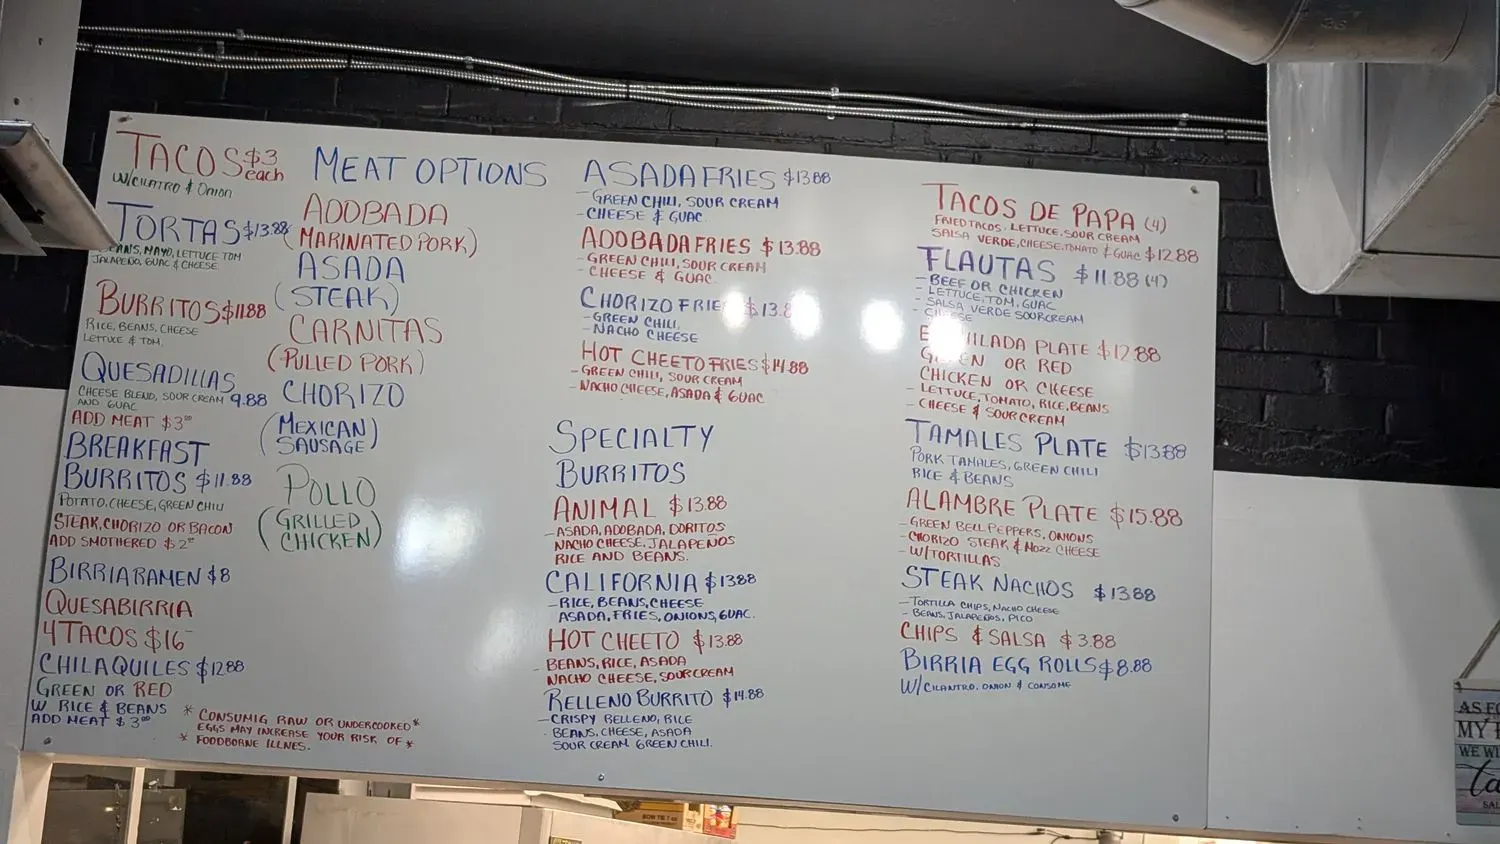 TACOS $3 each
W/CILATRO & ONION
TORTAS $13.88
BEANS, MAYO, LETTUCE TOM
JALAPEÑO, GUAC & CHEESE
BURRITOS $11.88
RICE, BEANS, CHEESE
LETTUCE & TOM.
QUESADILLAS
CHEESE BLEND, SOUR CREAM 9.88
AND GUAC
ADD MEAT $3⁰⁰
BREAKFAST
BURRITOS $11.88
POTATO, CHEESE, GREEN CHILI
STEAK, CHORIZO OR BACON
ADD SMOTHERED $2⁰⁰
BIRRIA RAMEN $8
QUESABIRRIA
4 TACOS $16
CHILAQUILES $12.88
GREEN OR RED
W RICE & BEANS
ADD MEAT $3⁰⁰
MEAT OPTIONS
ADOBADA
(MARINATED PORK)
ASADA
(STEAK)
CARNITAS
(PULLED PORK)
CHORIZO
(MEXICAN
SAUSAGE)
POLLO
(GRILLED
CHICKEN)
* CONSUMIG RAW OR UNDERCOOKED *
EGGS MAY INCREASE YOUR RISK OF *
* FOODBORNE ILLNES.
ASADA FRIES $13.88
- GREEN CHILI, SOUR CREAM
- CHEESE & GUAC
ADOBADA FRIES $13.88
- GREEN CHILI, SOUR CREAM
- CHEESE & GUAC.
CHORIZO FRIE $13.8
- GREEN CHILI.
- NACHO CHEESE
HOT CHEETO FRIES $14.88
- GREEN CHILI, SOUR CREAM
- NACHO CHEESE, ASADA & GUAC
SPECIALTY
BURRITOS
ANIMAL $13.88
- ASADA, ADOBADA, DORITOS
NACHO CHEESE, JALAPEÑOS
RICE AND BEANS.
CALIFORNIA $13.88
- RICE, BEANS, CHEESE
ASADA, FRIES, ONIONS, GUAC.
HOT CHEETO $13.88
BEANS, RICE, ASADA
NACHO CHEESE, SOUR CREAM
RELLENO BURRITO $14.88
- CRISPY RELLENO, RICE
BEANS, CHEESE, ASADA
SOUR CREAM. GREEN CHILI.
TACOS DE PAPA (4)
FRIED TACOS, LETTUCE, SOUR CREAM
SALSA VERDE, CHEESE, TOMATO & GUAC $12.88
FLAUTAS $11.88 (4)
- BEEF OR CHICKEN
- LETTUCE, TOM, GUAC
- SALSA VERDE SOURCREAM
PLATE $12.88
OR RED
CHICKEN OR CHEESE
- LETTUCE, TOMATO, RICE, BEANS
- CHEESE & SOUR CREAM
TAMALES PLATE $13.88
PORK TAMALES, GREEN CHILI
RICE & BEANS
ALAMBRE PLATE $15.88
- GREEN BELL PEPPERS, ONIONS
- CHORIZO STEAK & MOZZ CHEESE
- W/TORTILLAS
STEAK NACHOS $13.88
- TORTILLA CHIPS, NACHO CHEESE
- BEANS, JALAPEÑOS, PICO
CHIPS & SALSA $3.88
BIRRIA EGG ROLLS $8.88
W/CILANTRO, ONION & CONSOME
AS FO
MY
WE WI